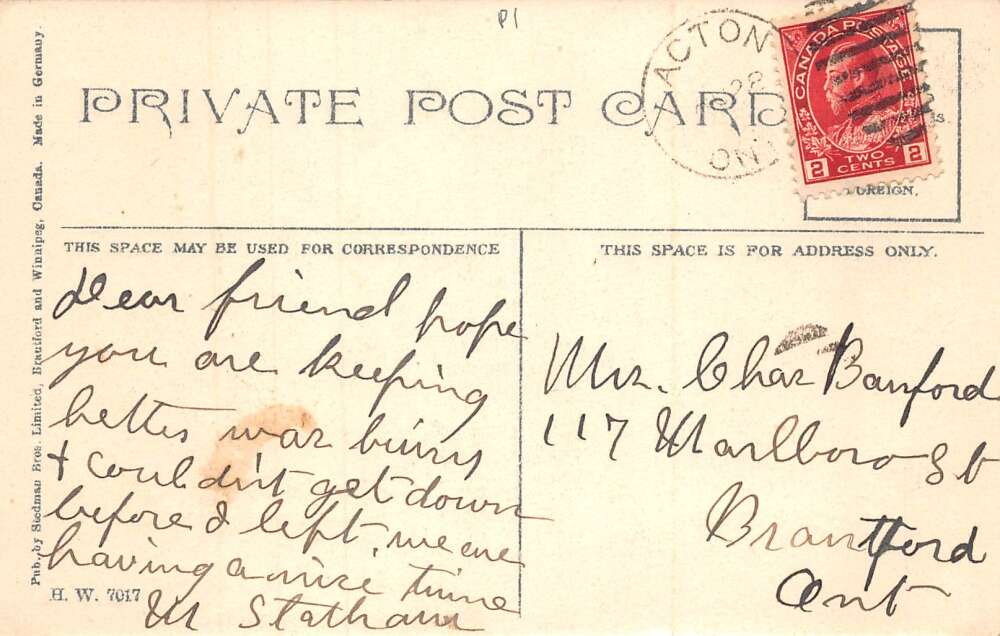 P1
PRIVATE POST CARD
ACTON
22
ONT
CANADA POSTAGE
2 TWO CENTS 2
FOREIGN,
Pub. by Stedman Bros. Limited, Brantford and Winnipeg, Canada. Made in Germany.
THIS SPACE MAY BE USED FOR CORRESPONDENCE
Dear friend hope
you are keeping
better was busy
& couldn't get down
before I left, we are
having a nice time
M Statham
H. W. 7017
THIS SPACE IS FOR ADDRESS ONLY.
Mrs. Chas Bamford
117 Marlboro St
Brantford
Ont